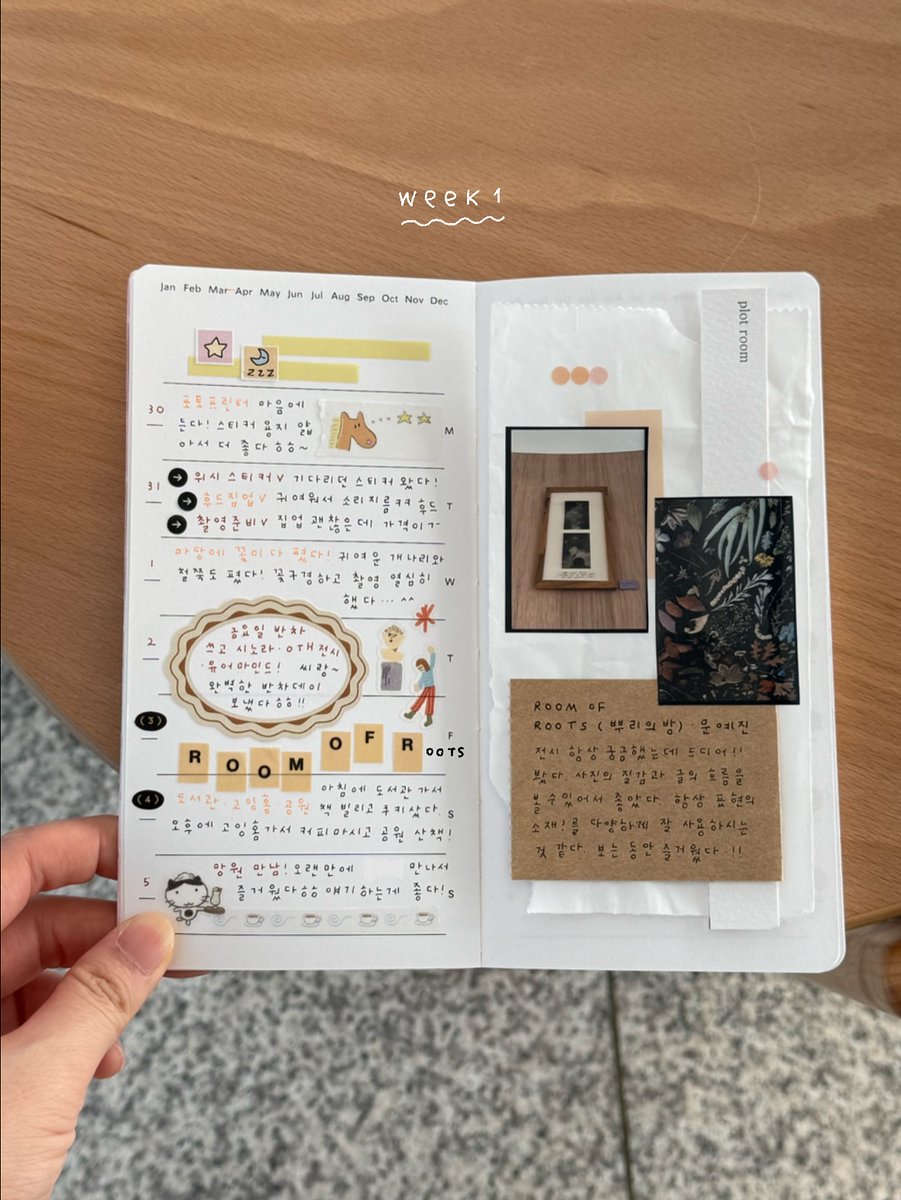 week 1
Jan Feb Mar Apr May Jun Jul Aug Sep Oct Nov Dec
zzz
30
포토프린터 마음에
든다! 스티커 용지 얇
아서 더 좋다 하하~
M
31
워시 스티커V 기다리던 스티커 왔다!
후드집업V 귀여워서 소리지름ㅋㅋ 후드
T
촬영준비V 집업 괜찮은데 가격이ㅜ
1
마당에 꽃이 다 폈다! 귀여운 개나리와
철쭉도 폈다! 꽃구경하고 촬영 열심히
W
했다... ^^
2
금요일 반차
쓰고 시노라·OTH전시
·유어마인드! 씨랑~
완벽한 반차데이
보냈다하!!
T
(3)
F
ROOM OF ROOTS
(4)
아침에 도서관 가서
도서관·고잉홈·공원 책 빌리고 쿠키샀다.
S
오후에 고잉홈가서 커피마시고 공원 산책!
5
망원 만남! 오랜만에 만나서
즐거웠다하하 얘기하는게 좋다!
S
plot room
ROOM OF
ROOTS (뿌리의밤)·문예진
전시 항상 궁금했는데 드디어!!
봤다. 사진의 질감과 글의 흐름을
볼수있어서 좋았다. 항상 표현의
소재를 다양하게 잘 사용하시는
것 같다 보는 동안 즐거웠다·!!